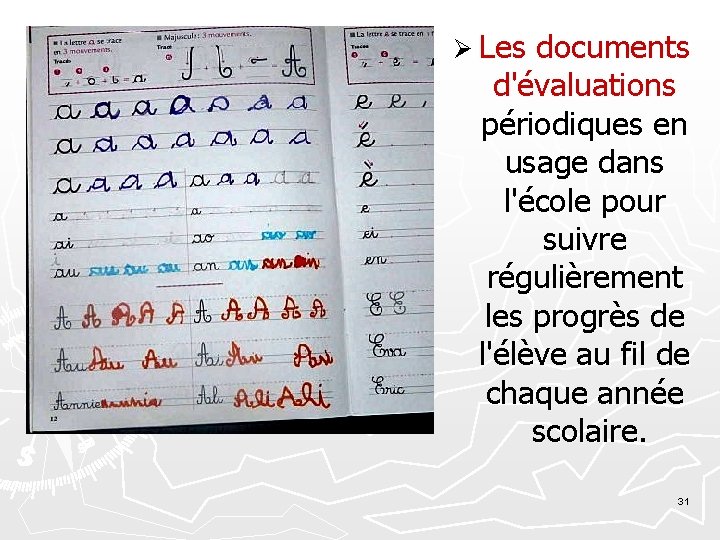 ■ La lettre a se trace
en 3 mouvements.
Tracés
■ Majuscule : 3 mouvements.
Tracé
+ + = A
a a a a a a a
a a a a a a a
a a a a a a a a a
a a
ai ao io io
au au au au an an an an
A A A A A A A A A A
Au Au Au Au Au Ari
Annie annia Al Ali Ali
12
■ La lettre e se trace en
Tracés
e e e
é
è
e
ei
en
E E
Eva
Eric
➢ Les documents
d'évaluations
périodiques en
usage dans
l'école pour
suivre
régulièrement
les progrès de
l'élève au fil de
chaque année
scolaire.
31